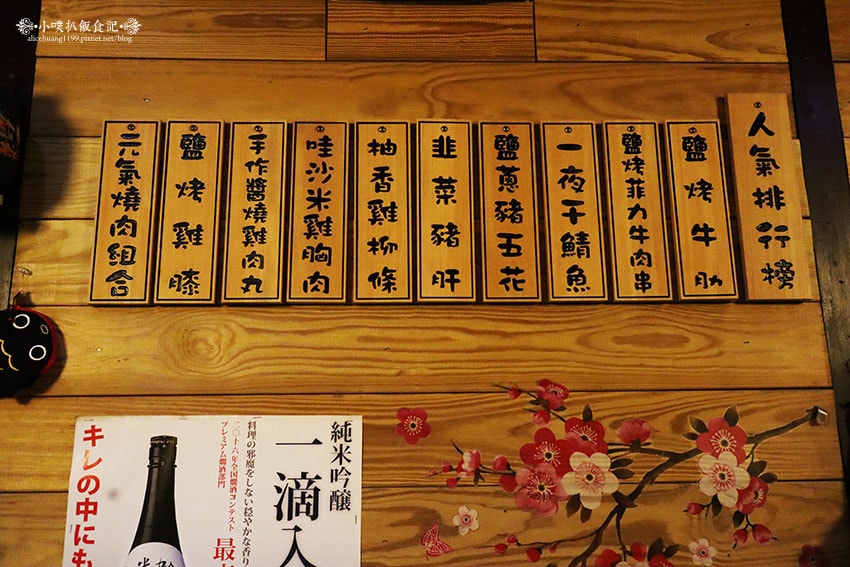 小噗扒飯食記
alicehuang1199.pixnet.net/blog
人氣排行榜
鹽烤牛肋
鹽烤菲力牛肉串
一夜干鯖魚
鹽蔥豬五花
韭菜豬肝
柚香雞柳條
哇沙米雞胸肉
手作醬燒雞肉丸
鹽烤雞膝
元氣燒肉組合
純米吟醸
一滴入
料理の邪魔をしない穏やかな香り
二〇十六年全国燗酒コンテスト
プレミアム燗酒部門
最
キレの中にも